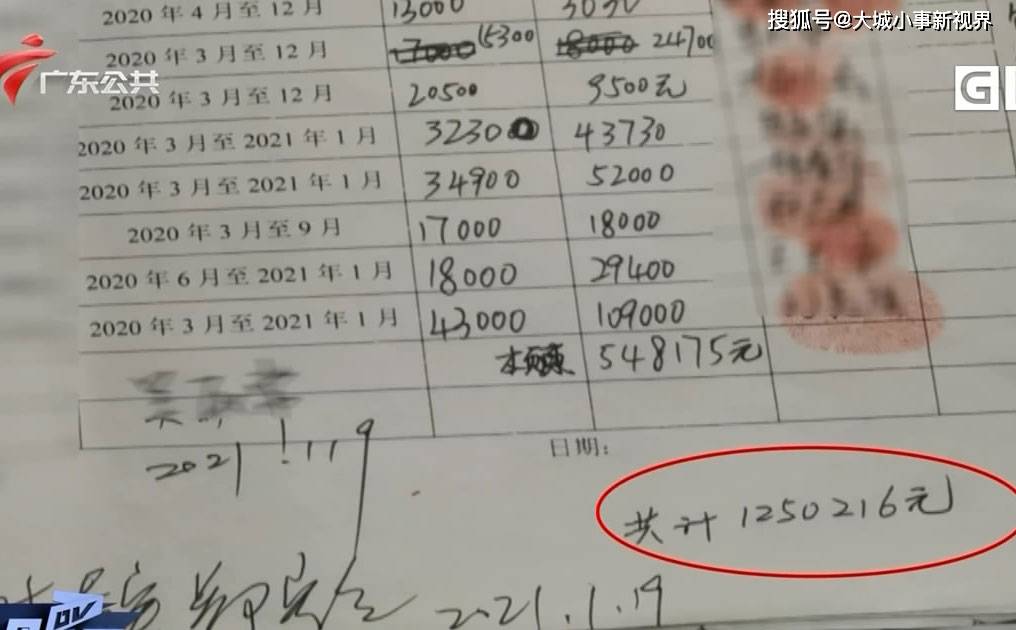 搜狐号@大城小事新视界
广东公共
G
2020 年 4 月至 12 月 13000
2020 年 3 月至 12 月 7000 15300 18000 24700
2020 年 3 月至 12 月 20500 9500元
2020 年 3 月至 2021 年 1 月 3230 43730
2020 年 3 月至 2021 年 1 月 34900 52000
2020 年 3 月至 9 月 17000 18000
2020 年 6 月至 2021 年 1 月 18000 29400
2020 年 3 月至 2021 年 1 月 43000 109000
548175元
日期:
共计 1250216元
2021.1.19
DV